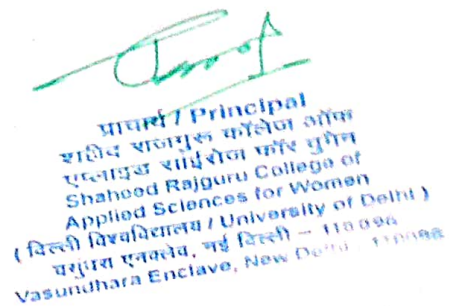 प्राचार्य / Principal
शहीद राजगुरू कॉलेज ऑफ
एप्लाइड साईंसेज फॉर वुमेन
Shaheed Rajguru College of
Applied Sciences for Women
( दिल्ली विश्वविद्यालय / University of Delhi )
वसुंधरा एनक्लेव, नई दिल्ली – 110096
Vasundhara Enclave, New Delhi - 110096